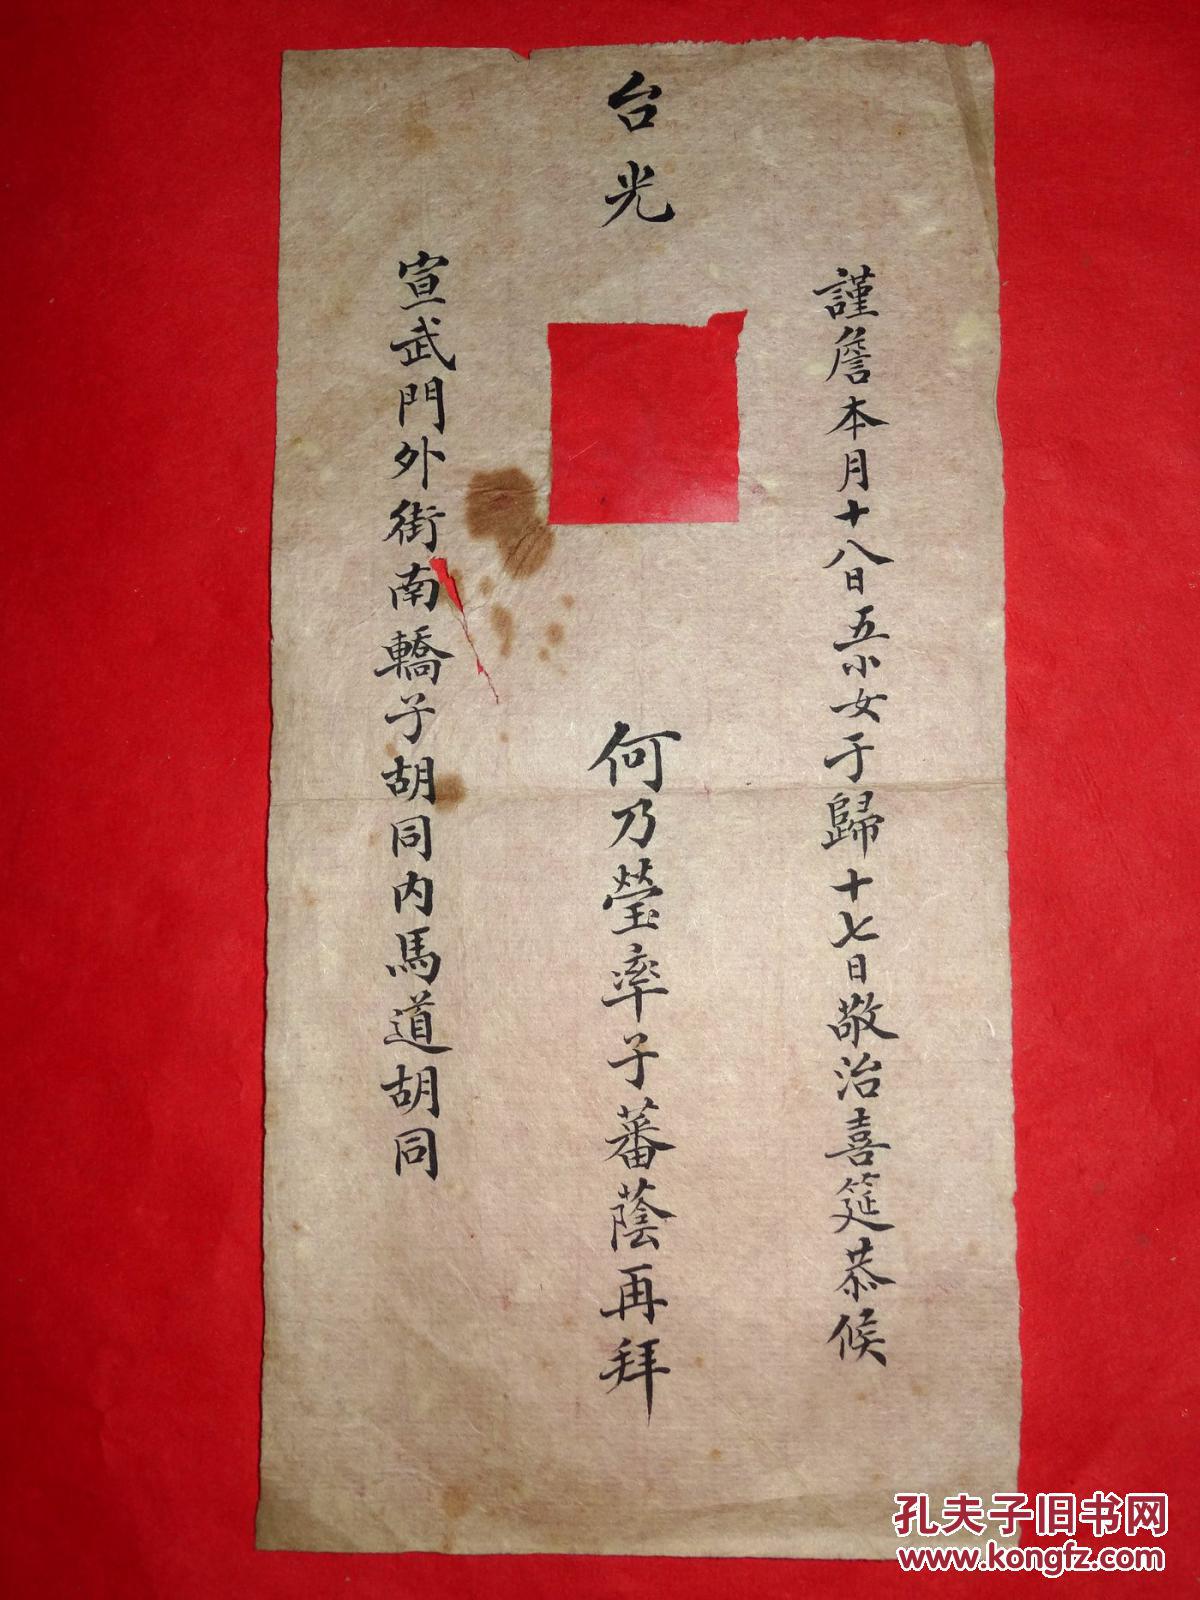 謹詹本月十八日五小女于歸十七日敬治喜筵恭候
台光
何乃瑩率子蕃蔭再拜
宣武門外街南轎子胡同内馬道胡同
孔夫子旧书网
www.kongfz.com